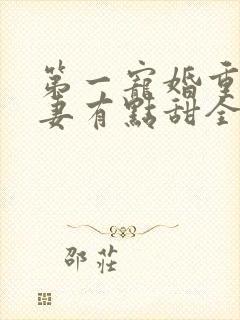 第一寵婚重
妻有點甜全
邵莊